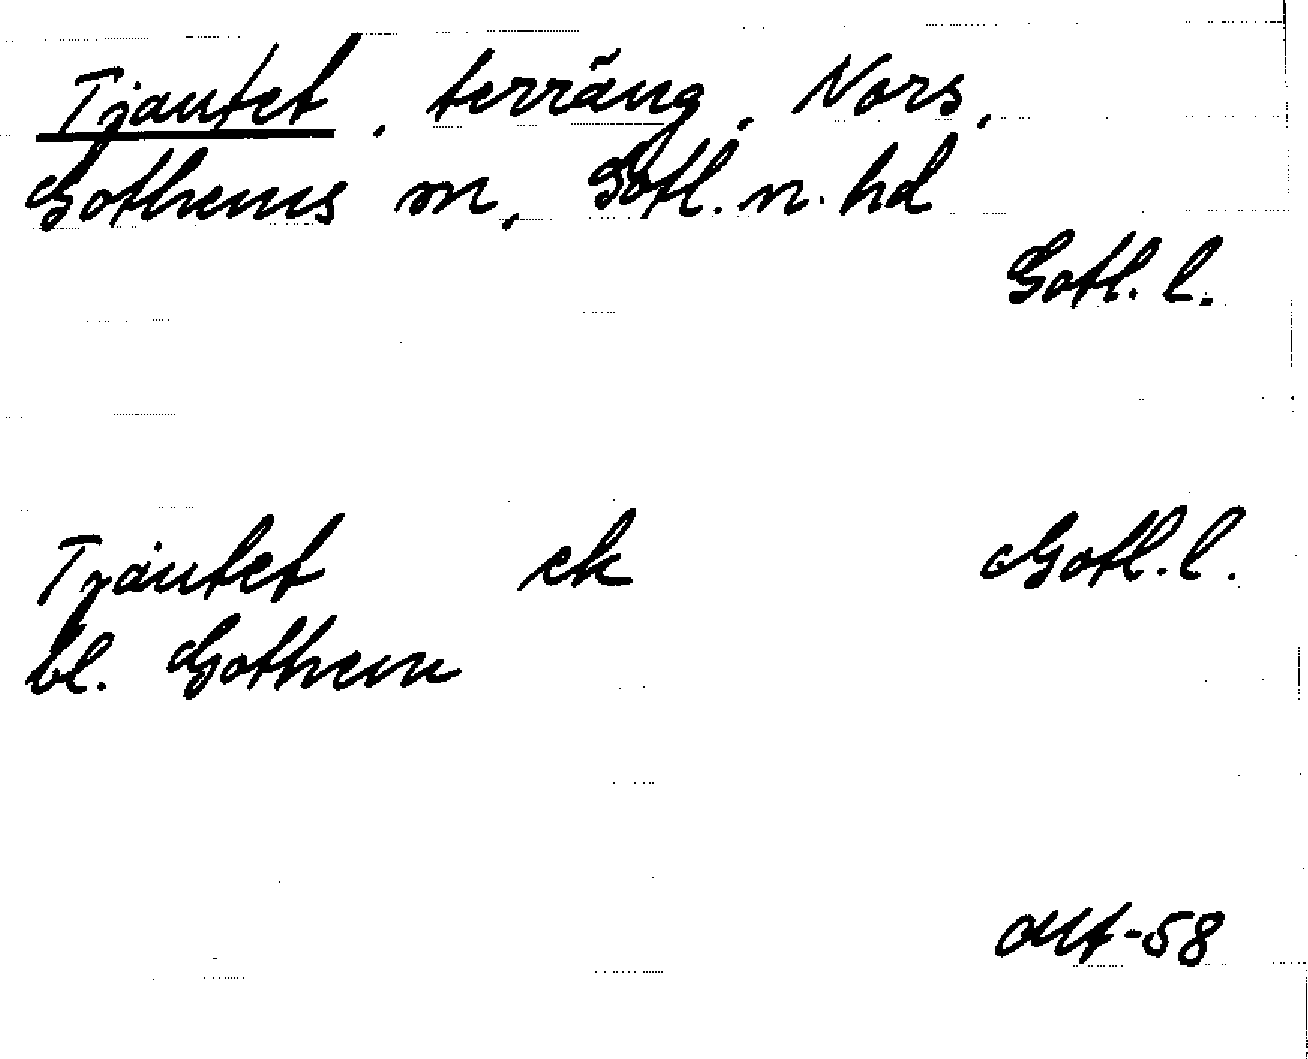 Tjautet, terräng, Nors,
Gothems sn, Gotl. n. hd
Gotl. l.
Tjautet ek Gotl. l.
bl. Gothem